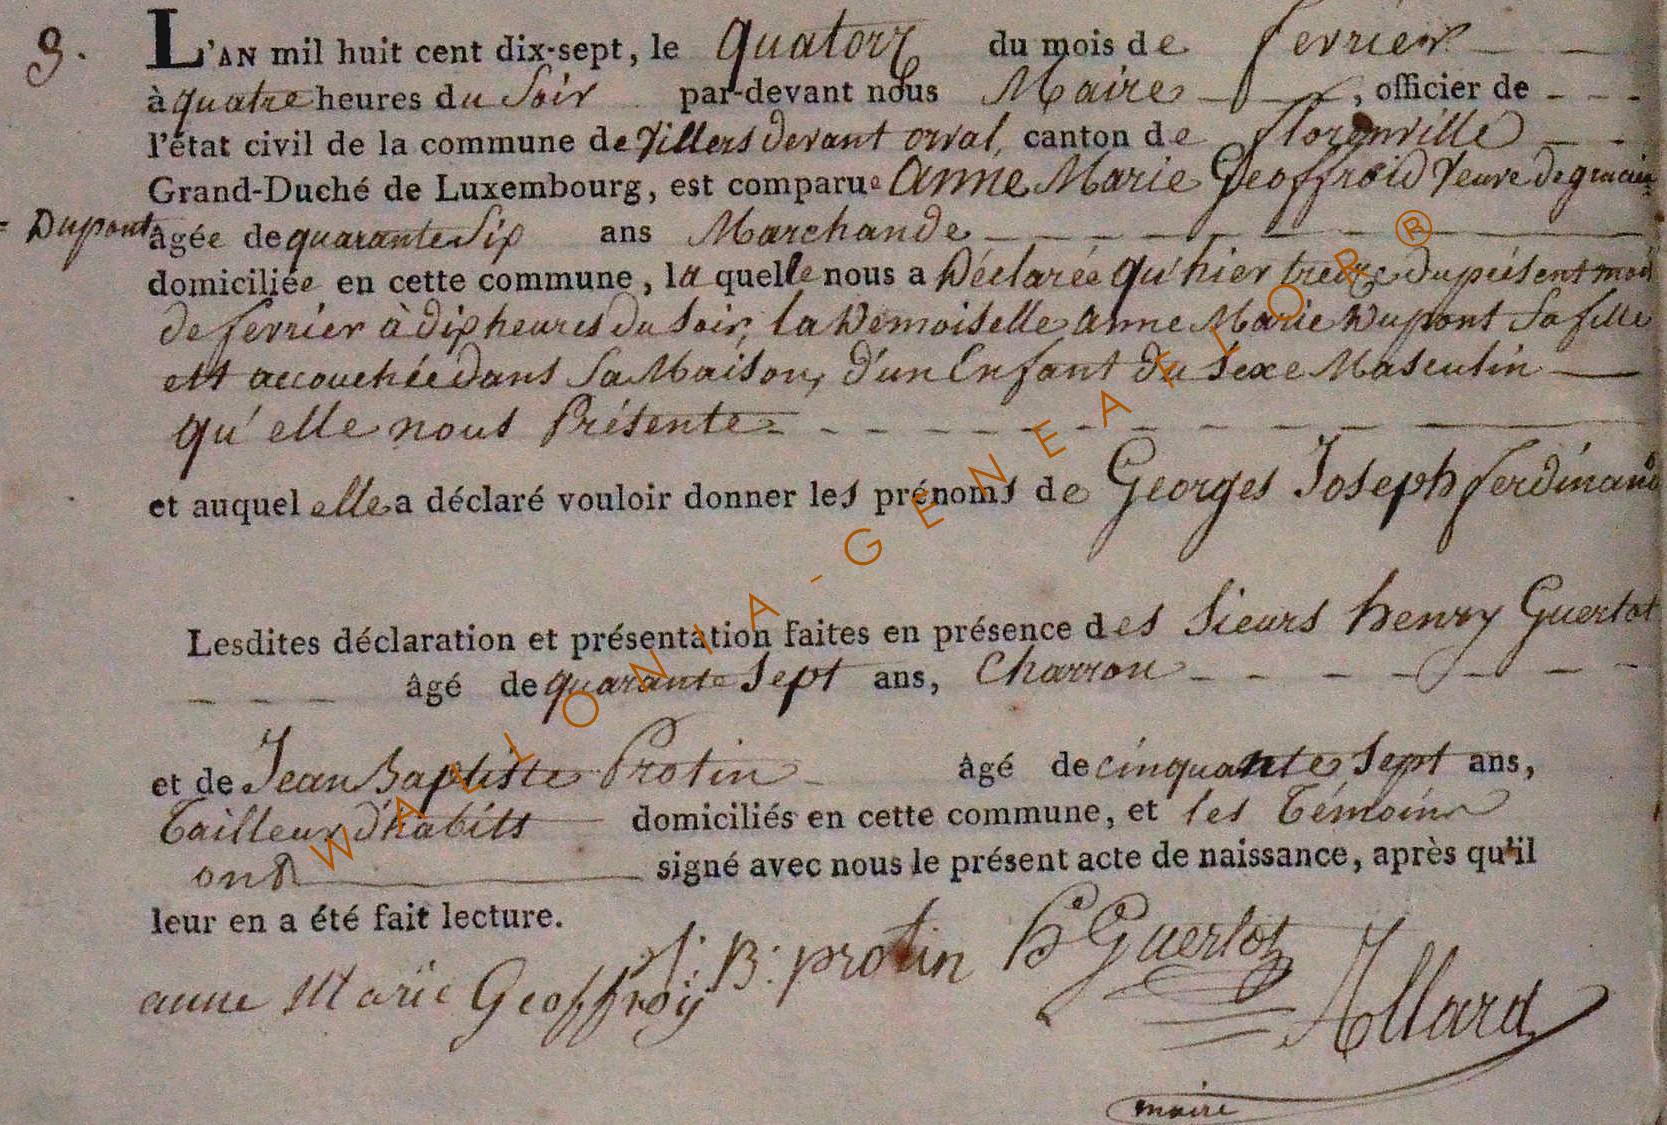 3. L'AN mil huit cent dix-sept, le quatorze du mois de fevrier
à quatre heures du soir par-devant nous Maire, officier de
l'état civil de la commune de Villers devant orval, canton de florenville
Grand-Duché de Luxembourg, est comparue Anne Marie Geoffroid Veuve de
= Dupont âgée de quarante Six ans Marchande
domiciliée en cette commune, la quelle nous a Déclarée qu'hier treize du présent mois
de fevrier à dix heures du soir, la Demoiselle Anne Marie Dupont sa fille
est accouchée dans sa Maison, d'un Enfant du sexe Masculin
qu'elle nous Présente
et auquel elle a déclaré vouloir donner les prénoms de Georges Joseph ferdinand
Lesdites déclaration et présentation faites en présence des sieurs henry Guerlot
âgé de quarante sept ans, Charron
et de Jean Baptiste Protin âgé de cinquante sept ans,
Tailleur d'habits domiciliés en cette commune, et les Témoins
ont signé avec nous le présent acte de naissance, après qu'il
leur en a été fait lecture.
J: B: protin h Guerlot
anne Marie Geoffroy Allard
maire
WALLONIA-GENEAFLOR®